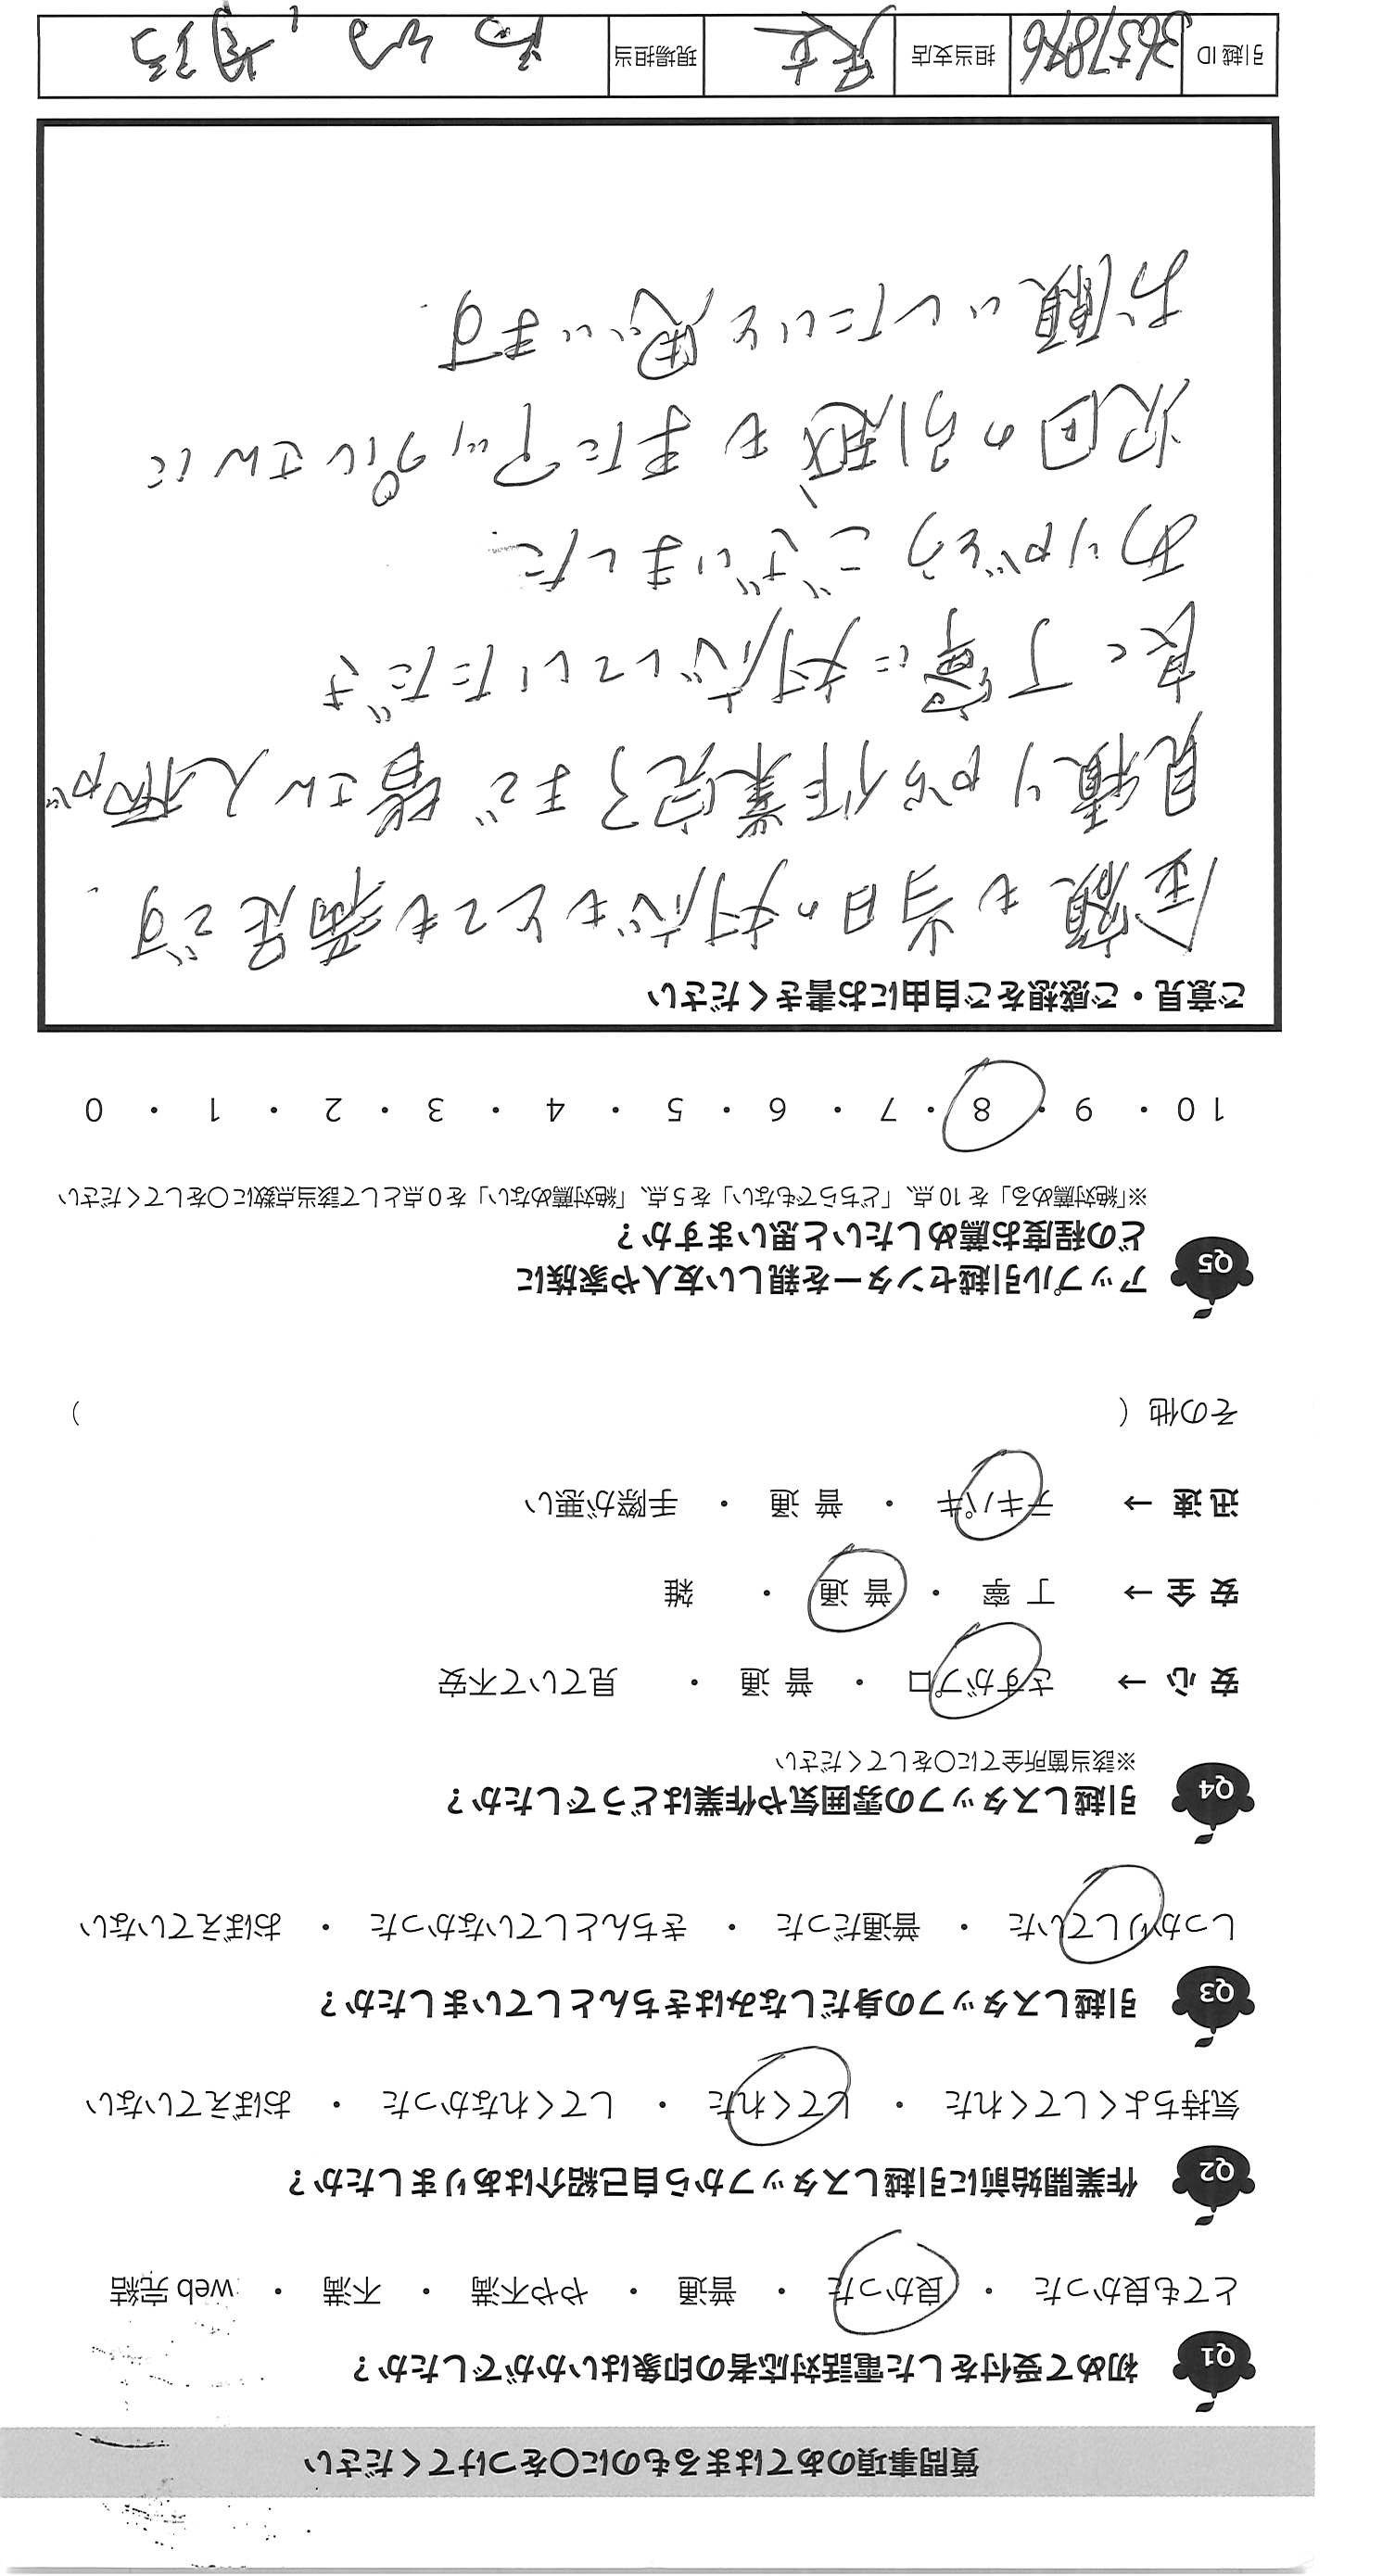 質問事項のあてはまるものに○をつけてください
Q1 初めて受付をした電話対応者の印象はいかがでしたか？
とても良かった ・ 良かった ・ 普通 ・ やや不満 ・ 不満 ・ web 完結
Q2 作業開始前に引越しスタッフから自己紹介はありましたか？
気持ちよくしてくれた ・ してくれた ・ してくれなかった ・ おぼえていない
Q3 引越しスタッフの身だしなみはきちんとしていましたか？
しっかりしていた ・ 普通だった ・ きちんとしていなかった ・ おぼえていない
Q4 引越しスタッフの雰囲気や作業はどうでしたか？
※該当箇所全てに○をしてください
安心 → さすがプロ ・ 普通 ・ 見ていて不安
安全 → 丁寧 ・ 普通 ・ 雑
迅速 → テキパキ ・ 普通 ・ 手際が悪い
その他 （ ）
Q5 アップル引越センターを親しい友人や家族に
どの程度お薦めしたいと思いますか？
※「絶対薦める」を10点、「どちらでもない」を5点、「絶対薦めない」を0点として該当点数に○をしてください
10 ・ 9 ・ 8 ・ 7 ・ 6 ・ 5 ・ 4 ・ 3 ・ 2 ・ 1 ・ 0
ご意見・ご感想をご自由にお書きください
金額も当日の対応もとても満足です.
見積りから作業完了まで皆さん人柄が
良く丁寧に対応していただき
ありがとうございました
次回の引越もまたアップルさんに
お願いしたいと思います.
引越ID 3657876 担当支店 現場担当